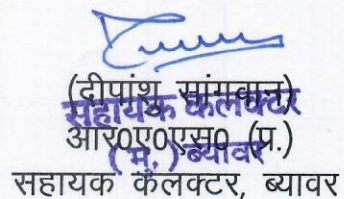 (दीपांशु सांगवान)
सहायक कलक्टर
आर0ए0एस0 (प्र.)
(मु.) ब्यावर
सहायक कलक्टर, ब्यावर